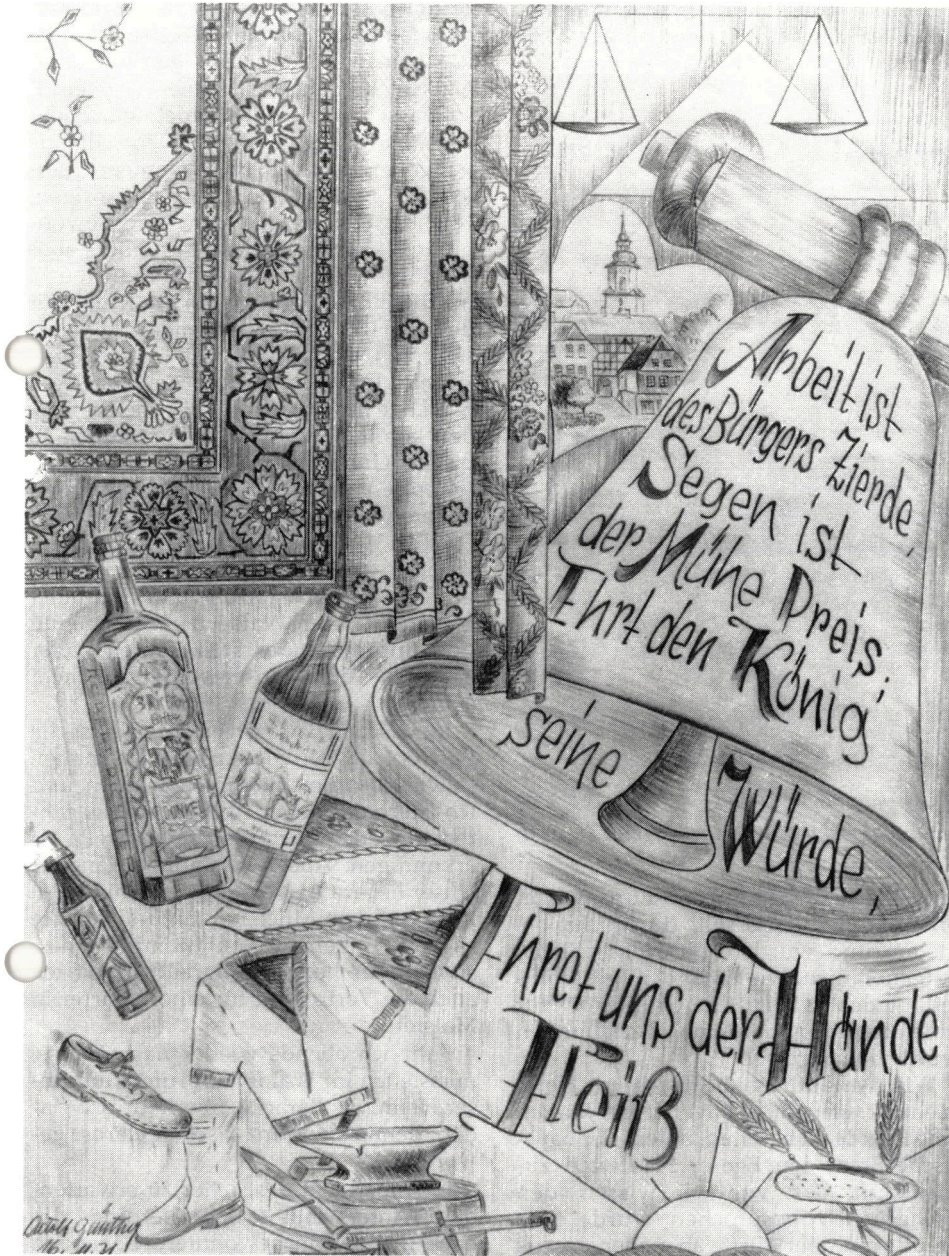 Arbeit ist
des Bürgers Zierde,
Segen ist
der Mühe Preis,
Ehrt den König
seine Würde,
Ehret uns der Hände
Fleiß